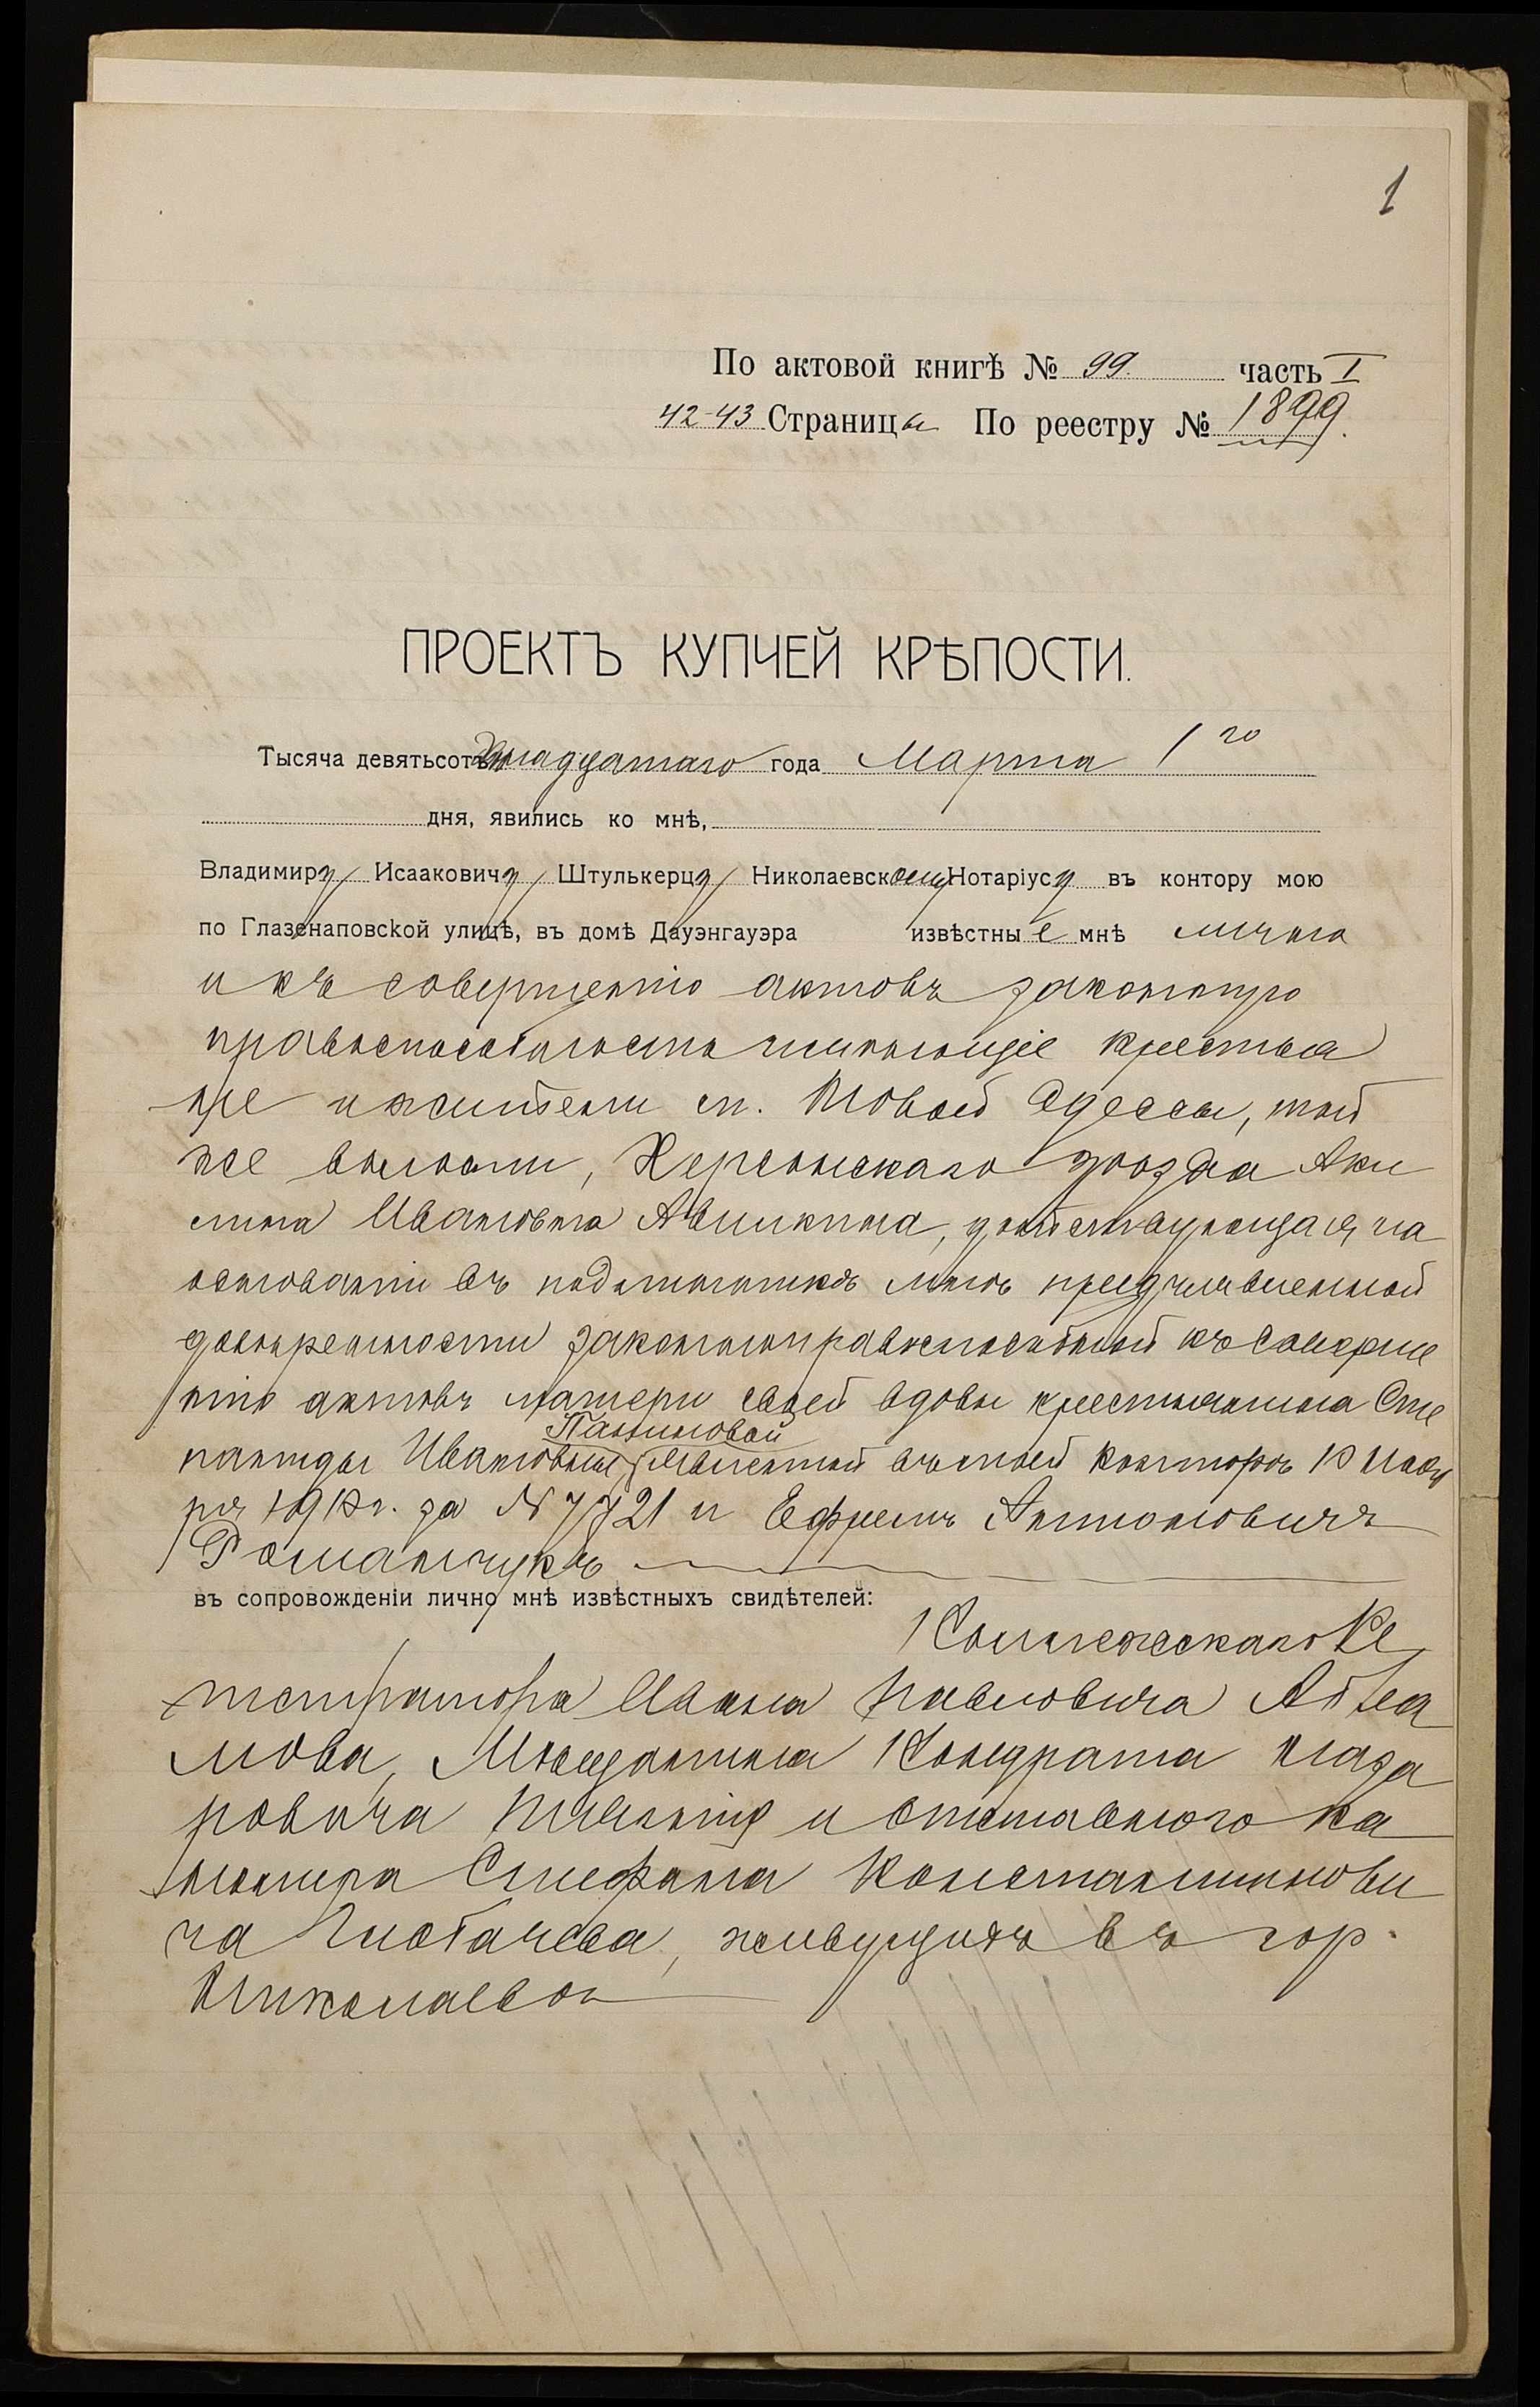 1
По актовой книгѣ № 99. часть I
42-43 Страницы По реестру № 1899.
ПРОЕКТЪ КУПЧЕЙ КРѢПОСТИ.
Тысяча девятьсотъ года Марта 1го
дня, явились ко мнѣ,
Владимиру Исааковичу Штулькерцу Николаевскому Нотаріусу въ контору мою
по Глазенаповской улицѣ, въ домѣ Дауэнгауэра извѣстные мнѣ лично
и къ совершенію актовъ законную
правоспособность имѣющіе крестья
не и жители м. Новой Одессы, той
же волости, Херсонскаго уѣзда Аку
лина Ивановна действующая на
основаніи въ подлинникѣ мнѣ предъявленной
довѣренности законноправоспособной къ соверше
нію актовъ матери своей вдовы крестьянина Сте
Паниновой
паниды Ивановны явленной въ моей конторѣ 10 Нояб
ря 191 г. за № 7721 и Ефремъ Антоновичъ
Романчукъ
въ сопровожденіи лично мнѣ извѣстныхъ свидѣтелей:
Коллежскаго Ре
гистратора Ивана Павловича Абра
мова, Мѣщанина Кондрата Наза
ровича и отставного ка
нонира Стефана Константинови
ча живущихъ въ гор.
Николаевѣ